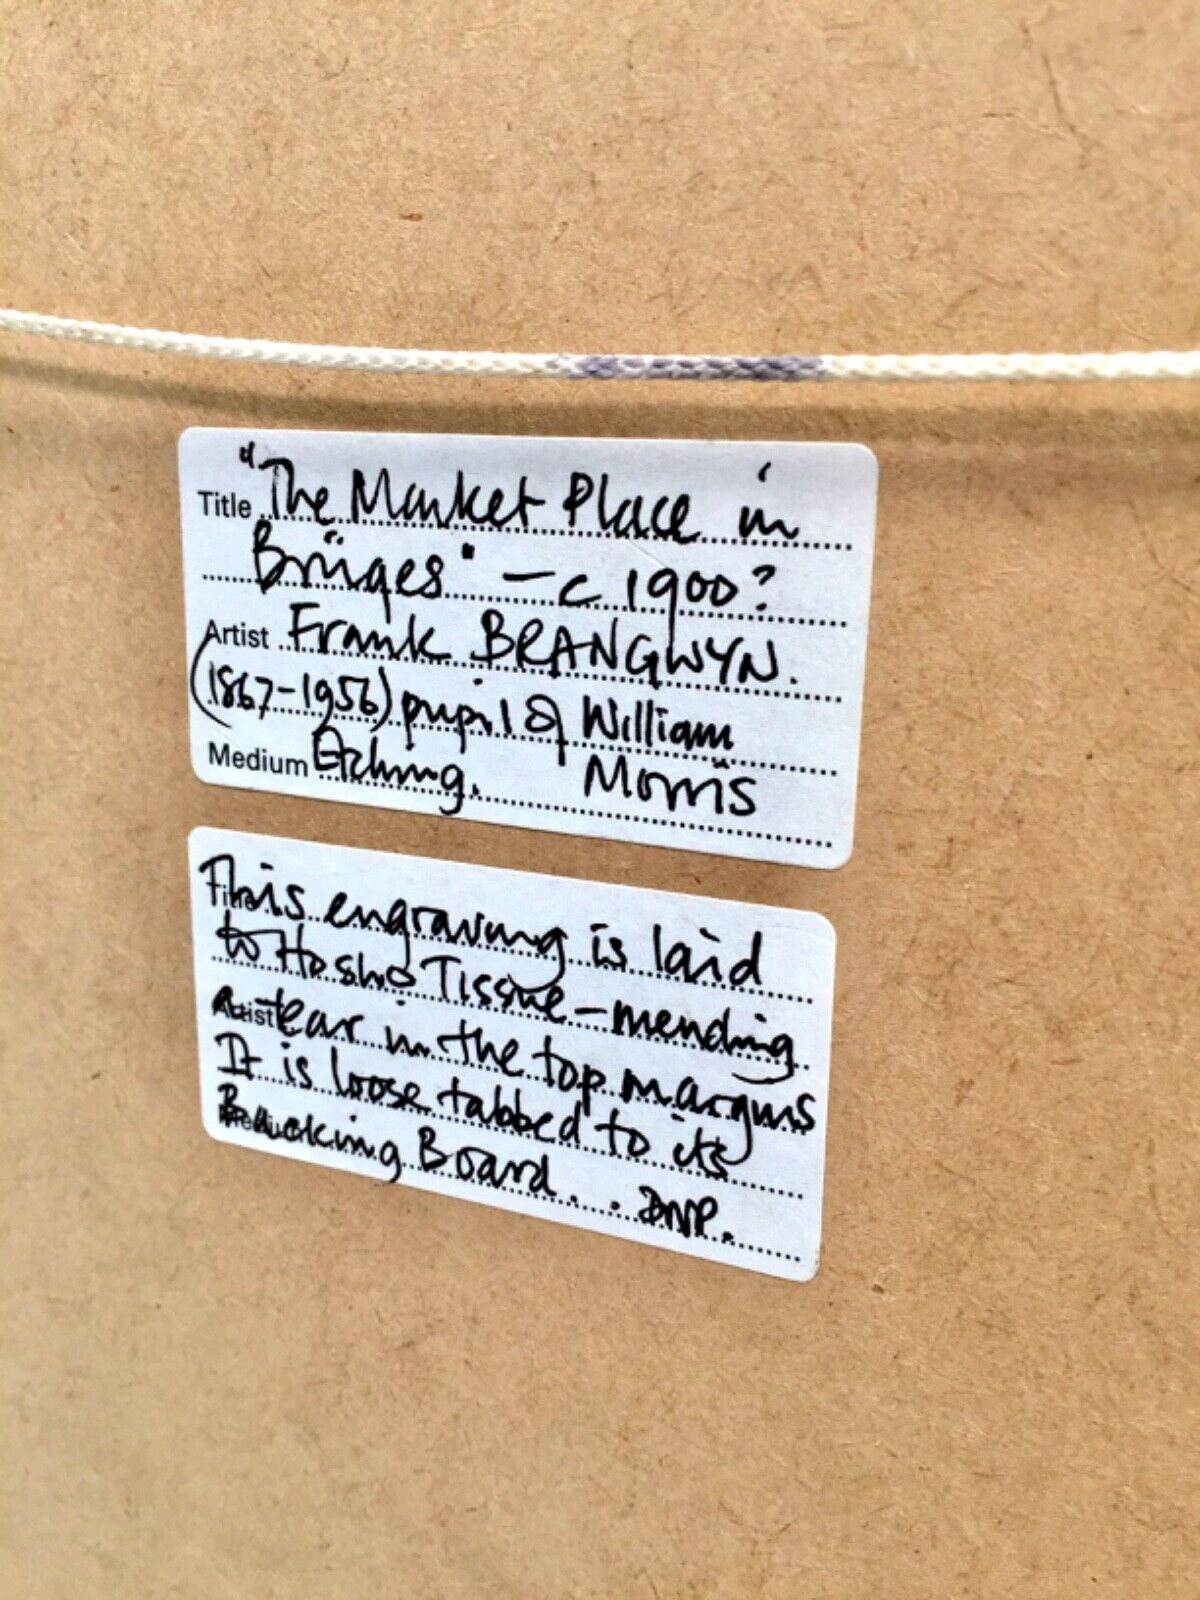 Title "The Market Place in
Brüges" - c 1900?
Artist Frank BRANGWYN.
(1867-1956) pupil of William
Medium Etching. Morris
This engraving is laid
to Hosho Tissue - mending
a tear in the top margins
It is loose tabbed to its
Backing Board. . DNP.